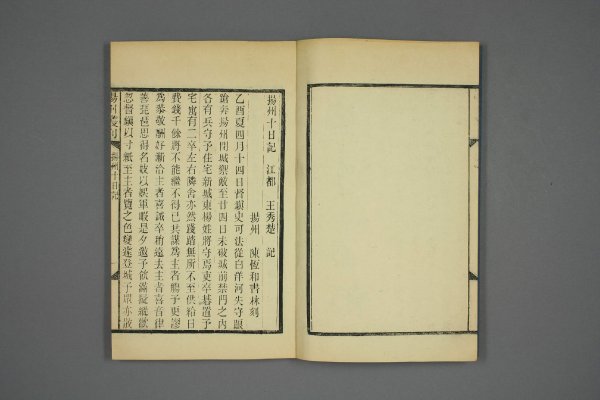 揚州十日記 江都 王秀楚 記
揚州 陳恆和書林刻
乙酉夏四月十四日督鎮史可法從白洋河失守踉
蹌奔揚州閉城禦敵至廿四日未破城前禁門之內
各有兵守予住宅新城東楊姓將守焉吏卒碁置予
宅寓有二卒左右隣舍亦然踐踏無所不至供給日
費錢千餘將不能繼不得已共謀為主者觴予更謬
為恭敬酬好漸洽主者喜誡卒稍遠去主者喜音律
善琵琶思得名妓以娛軍暇是夕邀予飲滿擬縱歡
忽督鎮以寸紙至主者覽之色變遽登城予眾亦散
揚州叢刊 揚州十日記